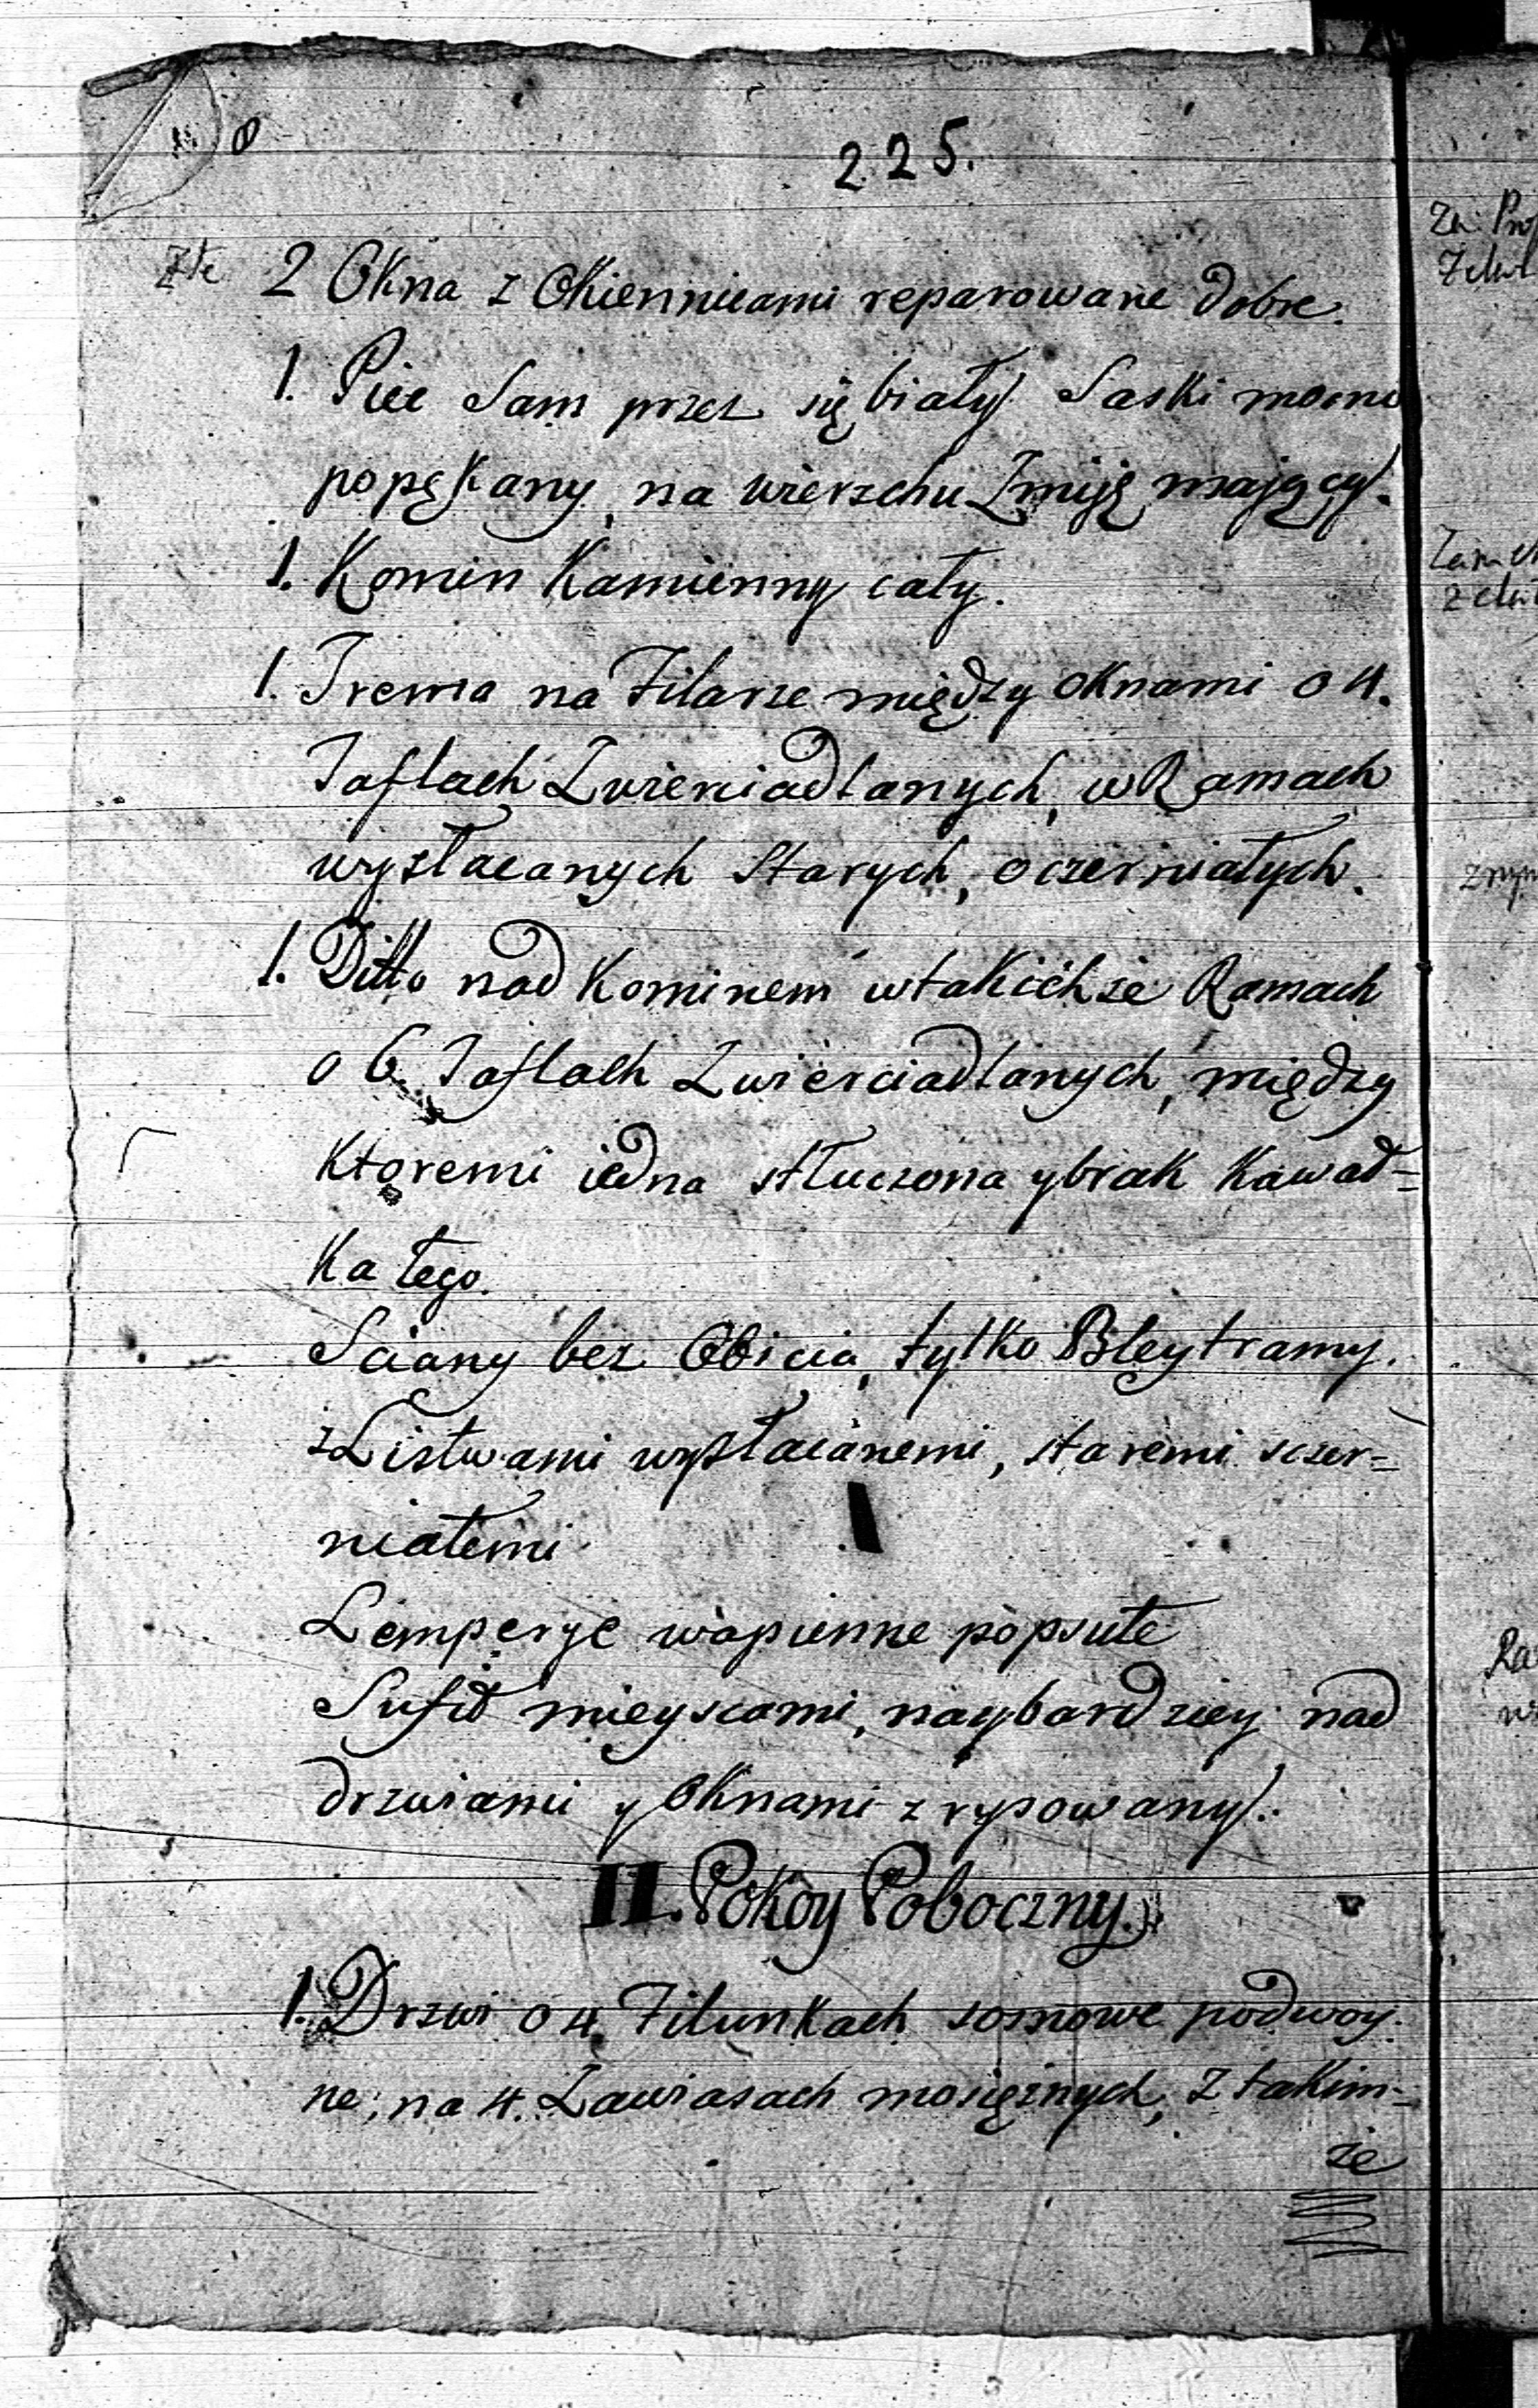 225.
Złe 2 Okna z Okiennicami reparowane dobre.
1. Piec Sam przez się biały Saski mocno
popękany, na wierzchu Zmiję mający.
1. Komin Kamienny cały.
1. Trema na Filarze między oknami o 4.
Taflach Zwierciadlanych, w Ramach
wyzłacanych Starych, oczerniałych.
1. Ditto nad Kominem w takichże Ramach
o 6. Taflach Zwierciadlanych, między
Ktoremi iedna stłuczona y brak Kawał=
Ka tego.
Sciany bez Obicia, tylko Bleytramy.
z Listwami wyzłacanemi, staremi sczer=
niałemi
Lemperye wapienne popsute
Sufit mieyscami, naybardziey nad
drzwiami y Oknami zrysowany.
II. Pokoy Poboczny.
1. Drzwi o 4. Filunkach sosnowe podwoy.
ne, na 4. Zawiasach mosiężnych, z takim=
że